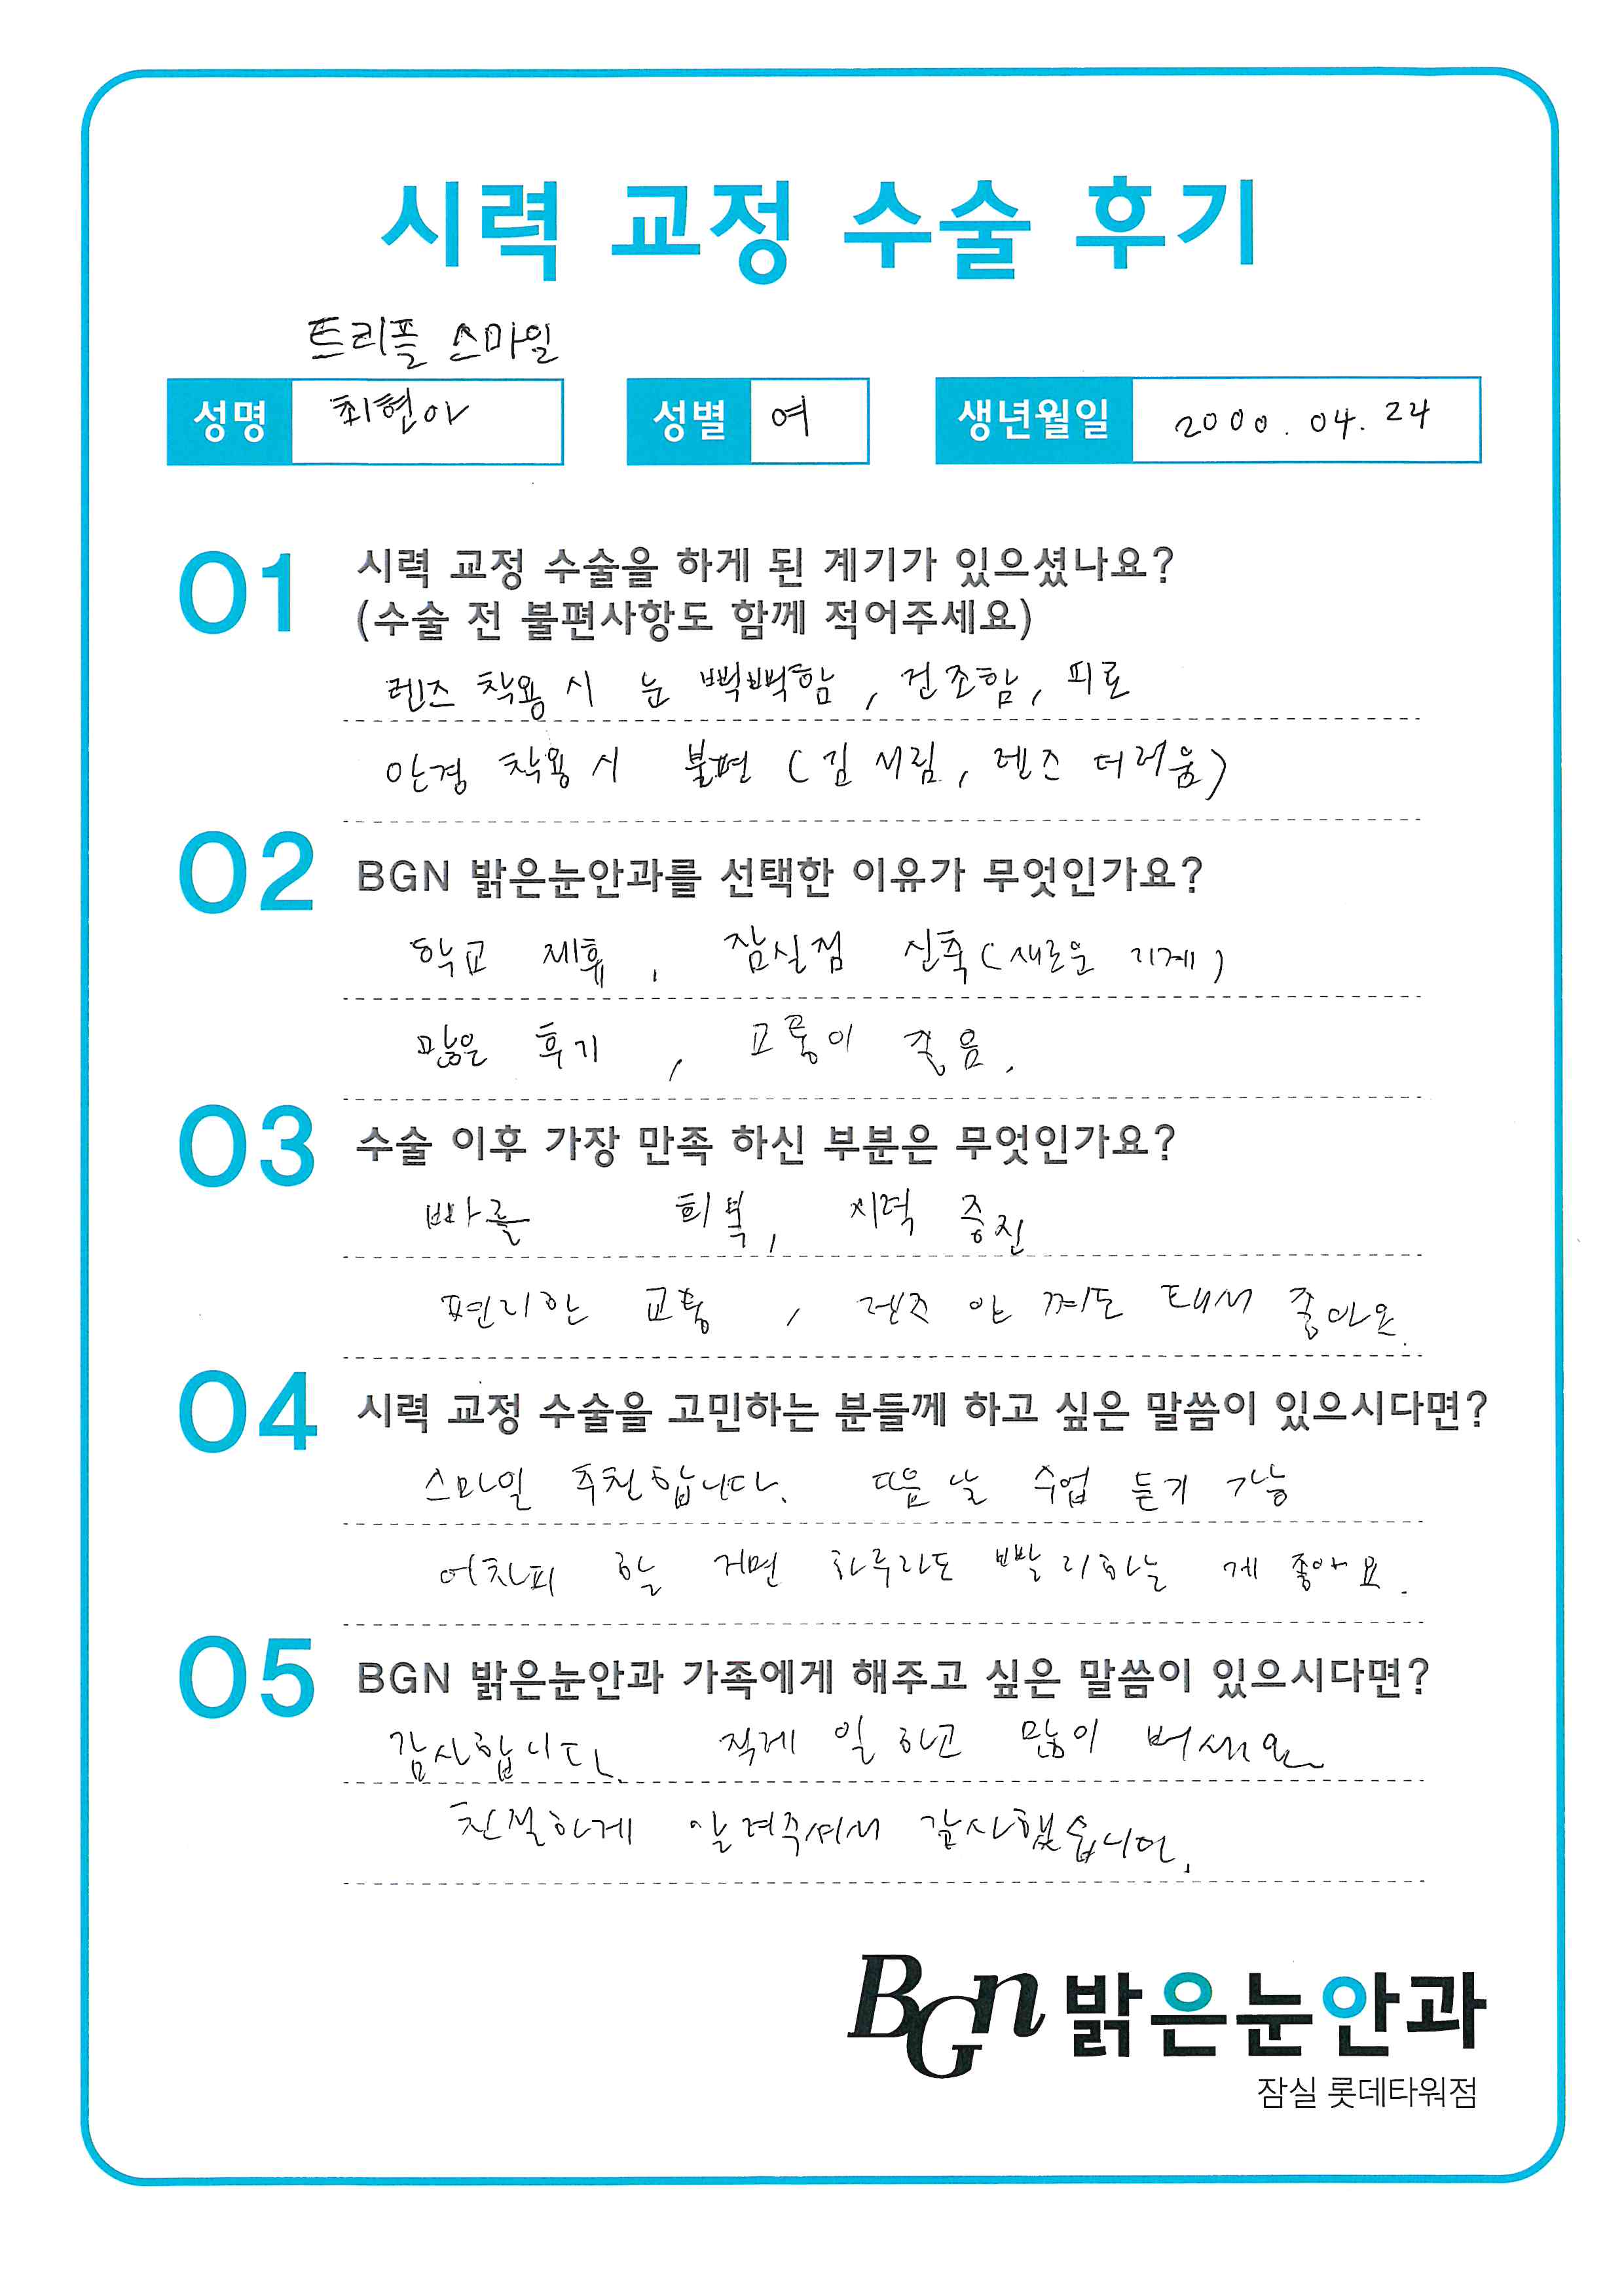 시력 교정 수술 후기
트리플 스마일
성명 최현아 성별 여 생년월일 2000. 04. 24
01 시력 교정 수술을 하게 된 계기가 있으셨나요?
(수술 전 불편사항도 함께 적어주세요)
렌즈 착용 시 눈 뻑뻑함, 건조함, 피로
안경 착용 시 불편 (김 서림, 렌즈 더러움)
02 BGN 밝은눈안과를 선택한 이유가 무엇인가요?
학교 제휴, 잠실점 신축(새로운 기계)
많은 후기, 교통이 좋음.
03 수술 이후 가장 만족 하신 부분은 무엇인가요?
빠른 회복, 시력 증진
편리한 교통, 렌즈 안 껴도 돼서 좋아요.
04 시력 교정 수술을 고민하는 분들께 하고 싶은 말씀이 있으시다면?
스마일 추천합니다. 다음날 수업 듣기 가능
어차피 할 거면 하루라도 빨리하는 게 좋아요.
05 BGN 밝은눈안과 가족에게 해주고 싶은 말씀이 있으시다면?
감사합니다. 적게 일하고 많이 버세요
친절하게 알려주셔서 감사했습니다.
BGn 밝은눈안과
잠실 롯데타워점